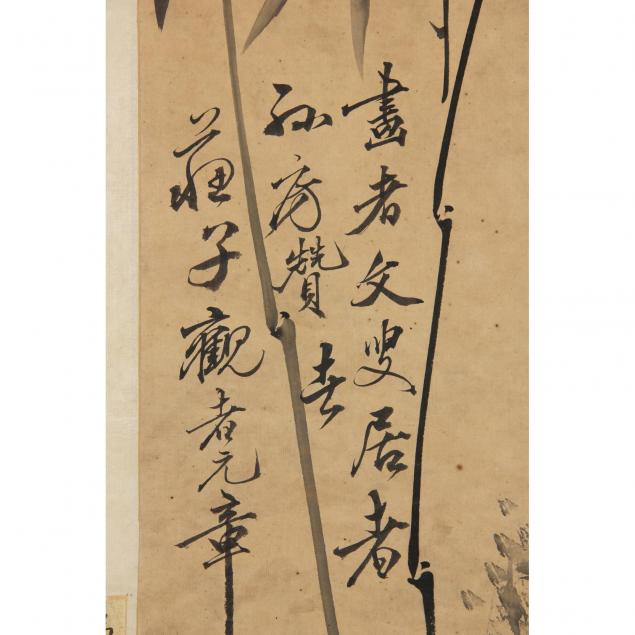 畫者文叟居者
孫房贊者
莊子觀者元章